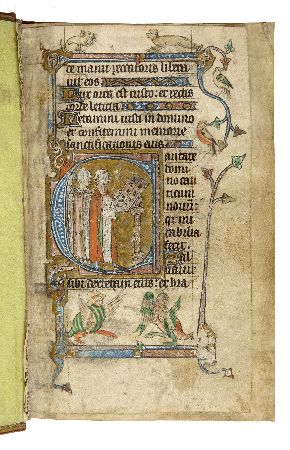 de manu peccatoris libera
vit eos
Lux orta est iusto: et rectis
corde leticia
Letamini iusti in domino
et confitemini memorie
sanctificationis eius
Cantate
domi
no can
ticum
novum:
quia mi
rabilia
fecit. Sal
vavit
sibi dextera eius: et bra